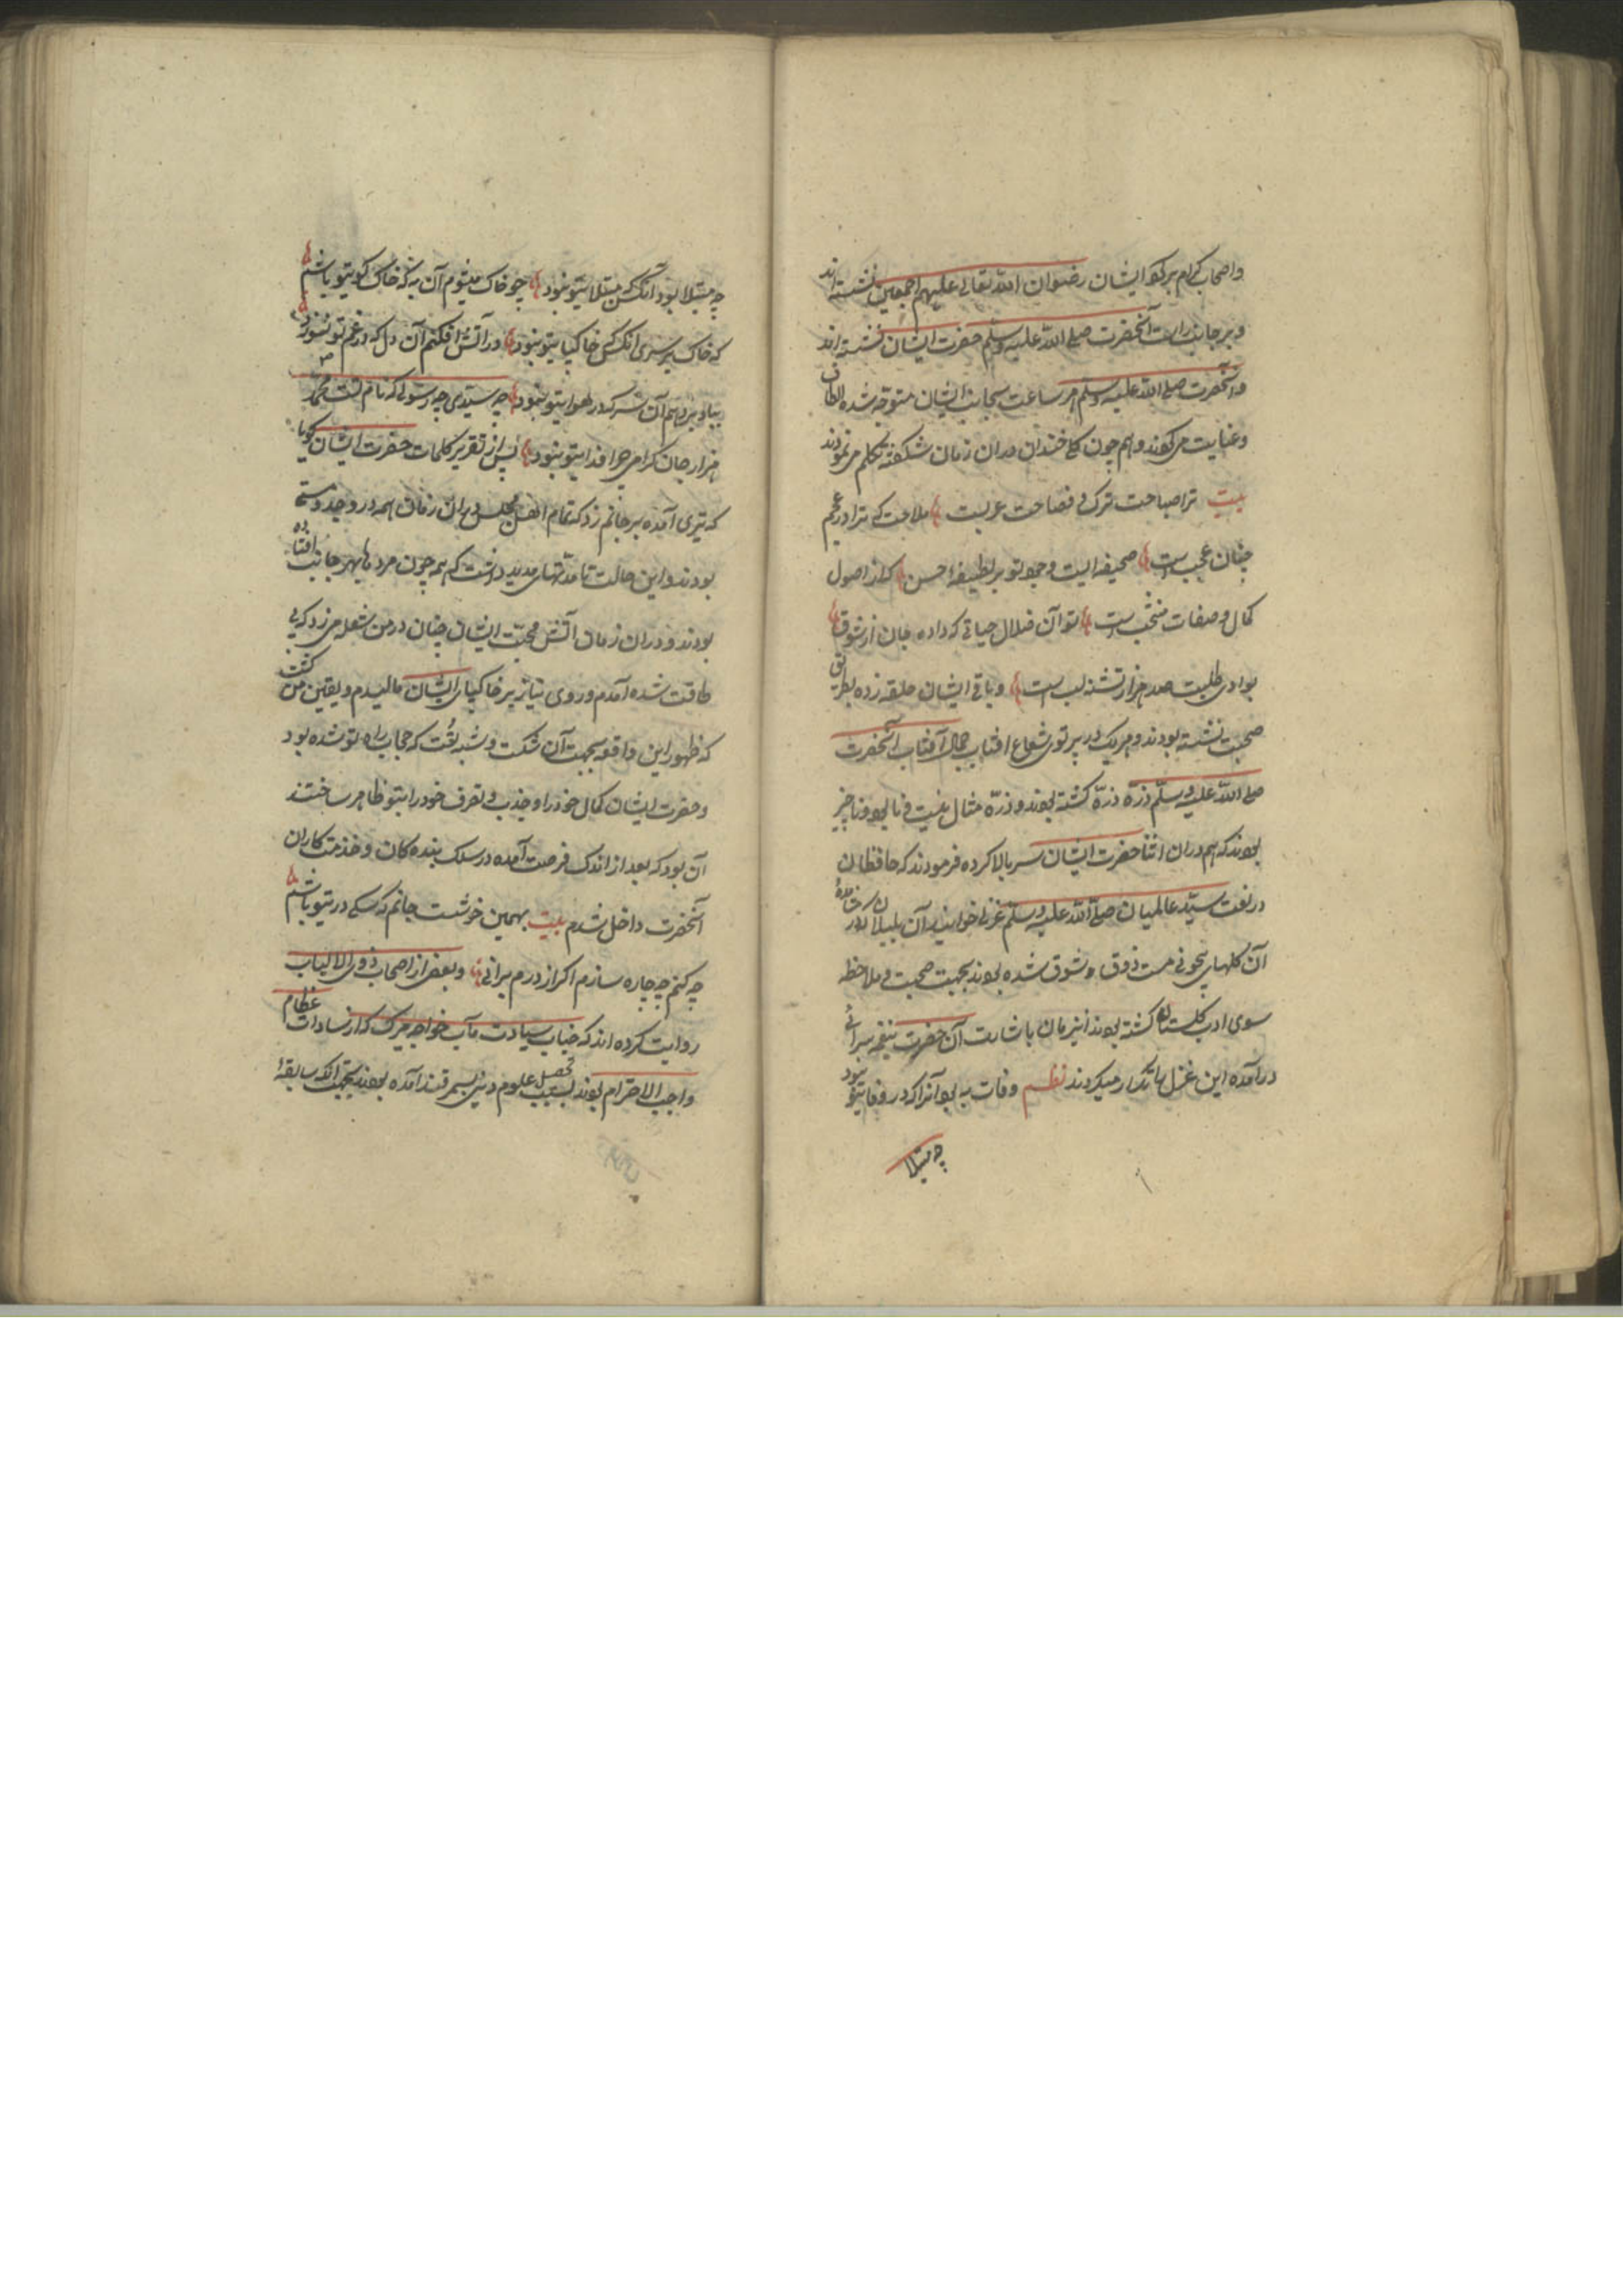 واصحاب کرام بر کو ایشان رضوان الله تعالی علیهم اجمعین نشسته اند
و بر جانب راست آنحضرت صلی الله علیه وسلم حضرت ایشان نشسته اند
و آنحضرت صلی الله علیه وسلم هر ساعت بجانب ایشان متوجه شده الطاف
و عنایت می کنند و هم چون گل خندان دران زمان شکفته تکلم می نمودند
بیت ترا صباحت ترک و فصاحت عربست ملاحت که ترا در عجم
چنان عجب است صحیفه ایست وجود تو بر لطیفه احسن که از اصول
کمال و صفات منتخب است تو آن ضلال حیاتی که داده جان از شوق
بوادی طلبت صد هزار تشنه لب است و باقی ایشان حلقه زده بطریق
صحبت نشسته بودند و هر یک در پرتوی شعاع افتاب جمال آفتاب آنحضرت
صلی الله علیه وسلم ذرّه ذرّه کشته بودند و ذرّه مثال نیست فنا بود و ناچیز
بودند که هم دران اثنا حضرت ایشان سر بالا کرده فرمودند که حافظان
در نعت سید عالمیان صلی الله علیه وسلم غزل خوانید آن بلبلان
آن گلهای مست ذوق و شوق شده بودند بجهت صحبت و ملاحظه
سوی ادب کشته بودند اینزمان باشارت آن حضرت بنغمه سرائی
درآمده این غزل را تکرار میکردند نظم وفات به بود آنرا که در وفا یتو نبود
چه مبتلا
چه مبتلا بود آنکس که مبتلا یتو نبود چو خاک میشوم آن به که خاک کویتو باشم
که خاک بر سری انکس خاکپا یتو نبود در آتش افکنم آن دل که در غم تو نسوزد
بباد بر دهم آن سر که در هوا یتو نبود چه سیدی چه رسولی که نام تست محمد
هزار جان گرامی چرا فدا یتو نبود پس از تقریر کلمات حضرت ایشان کویا
که تیری آمده بر جانم زد که تمام اهل مجلس دران زمان همه در وجد و مستی
بودند و این حالت تا مدتهای مدید داشت که همه چون مردها بهر جانب افتاده
بودند و دران زمان آتش محبت ایشان چنان در من شعله می زد که بی
طاقت شده آمدم و روی نیاز بر خاکپای ایشان مالیدم و یقین من کشت
که ظهور این واقعه بجهت آن شکت و شبهئت که حجاب راه تو شده بود
و حضرت ایشان کمال خود را و جذب و تصرف خود را بتو ظاهر ساختند
آن بود که بعد از اندک فرصت آمده در سلک بنده کان و خدمتکاران
آنحضرت داخل شدم بیت بهمین خوشست جانم که سکی در تیو باشم
چه کنم چه چاره سازم اکر از درم برانی و بعضی از اصحاب ذوی الالباب
روایت کرده اند که جناب سیادت مآب خواجه میرک که از سادات عظام
واجب الاحترام بودند بسبب تحصیل علوم دینی بسمرقند آمده بودند بجهت انکه سابقهٔ